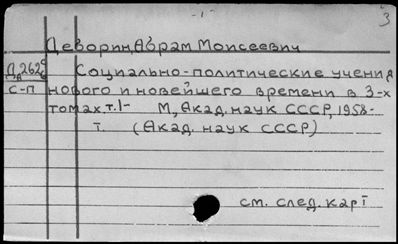 -1-
3
Деборин, Абрам Моисеевич
Социально-политические учения
С-П нового и новейшего времени в 3-х
томах. т.1- М, Акад. наук СССР, 1958-
т. (Акад. наук СССР)
см. след. карт